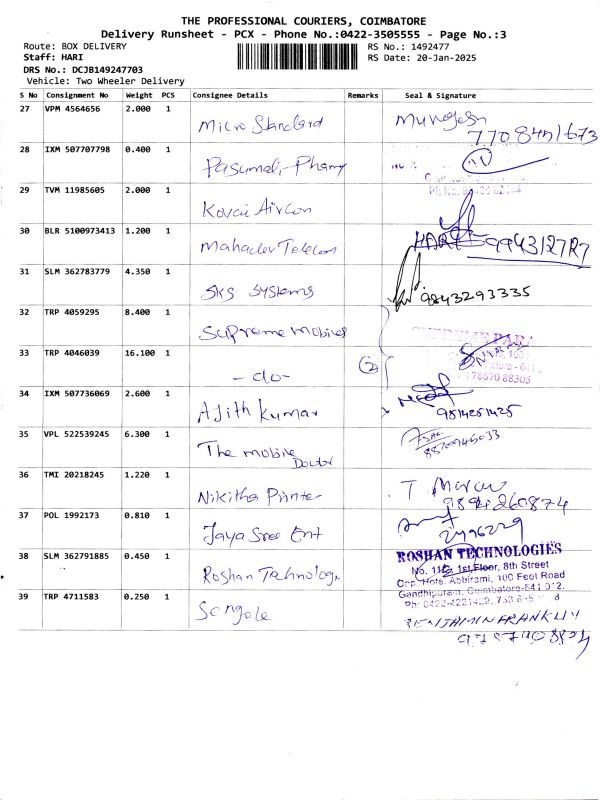 THE PROFESSIONAL COURIERS, COIMBATORE
Delivery Runsheet - PCX - Phone No.:0422-3505555 - Page No.:3
Route: BOX DELIVERY
RS No.: 1492477
Staff: HARI
RS Date: 20-Jan-2025
DRS No.: DCJB149247703
Vehicle: Two Wheeler Delivery
S No Consignment No Weight PCS Consignee Details Remarks Seal & Signature
27 VPM 4564656 2.000 1 Micro Standard Murugesh
7708451673
28 IXM 507707798 0.400 1 Pasumai Phamy
29 TVM 11985605 2.000 1 Kovai Aircon
30 BLR 5100973413 1.200 1 Mahadev Telecom HARI
31 SLM 362783779 4.350 1 SKS Systems 9843293335
32 TRP 4059295 8.400 1 Supreme mobiles
33 TRP 4046039 16.100 1 -do- 2
78670 88305
34 IXM 507736069 2.600 1 Ajith Kumar
9814251425
35 VPL 522539245 6.300 1 The mobile
Doctor
36 TMI 20218245 1.220 1 Nikitha Printer T
37 POL 1992173 0.810 1 Jaya Sree Ent
2496229
38 SLM 362791885 0.450 1 Roshan Technologi
ROSHAN TECHNOLOGIES
1st Floor, 8th Street
Opp. Hote. Abbirami, 100 Feet Road
Gandhipuram, Coimbatore-641 012.
39 TRP 4711583 0.250 1 Sengole
BENJAMIN FRANKLIN